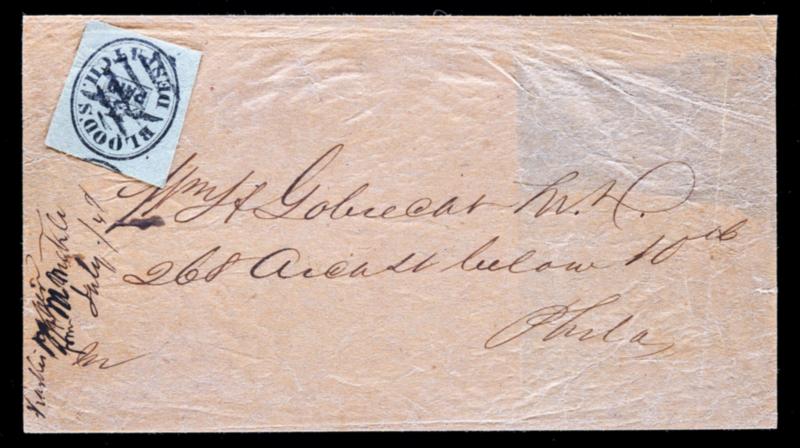 BLOOD'S DESPATCH
Wm H Gobrecht M.D.
268 Arch St below 10th
Phila
from
July /49